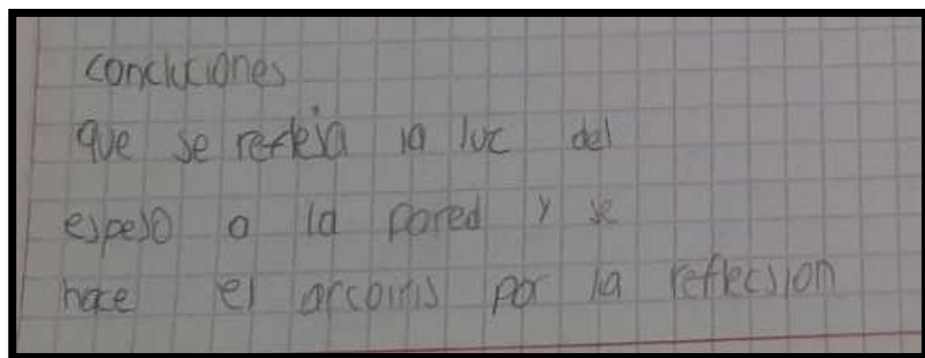 concluciones
que se refleja la luc del
espeso a la pared y se
hace el arcoiris por la reflecsion